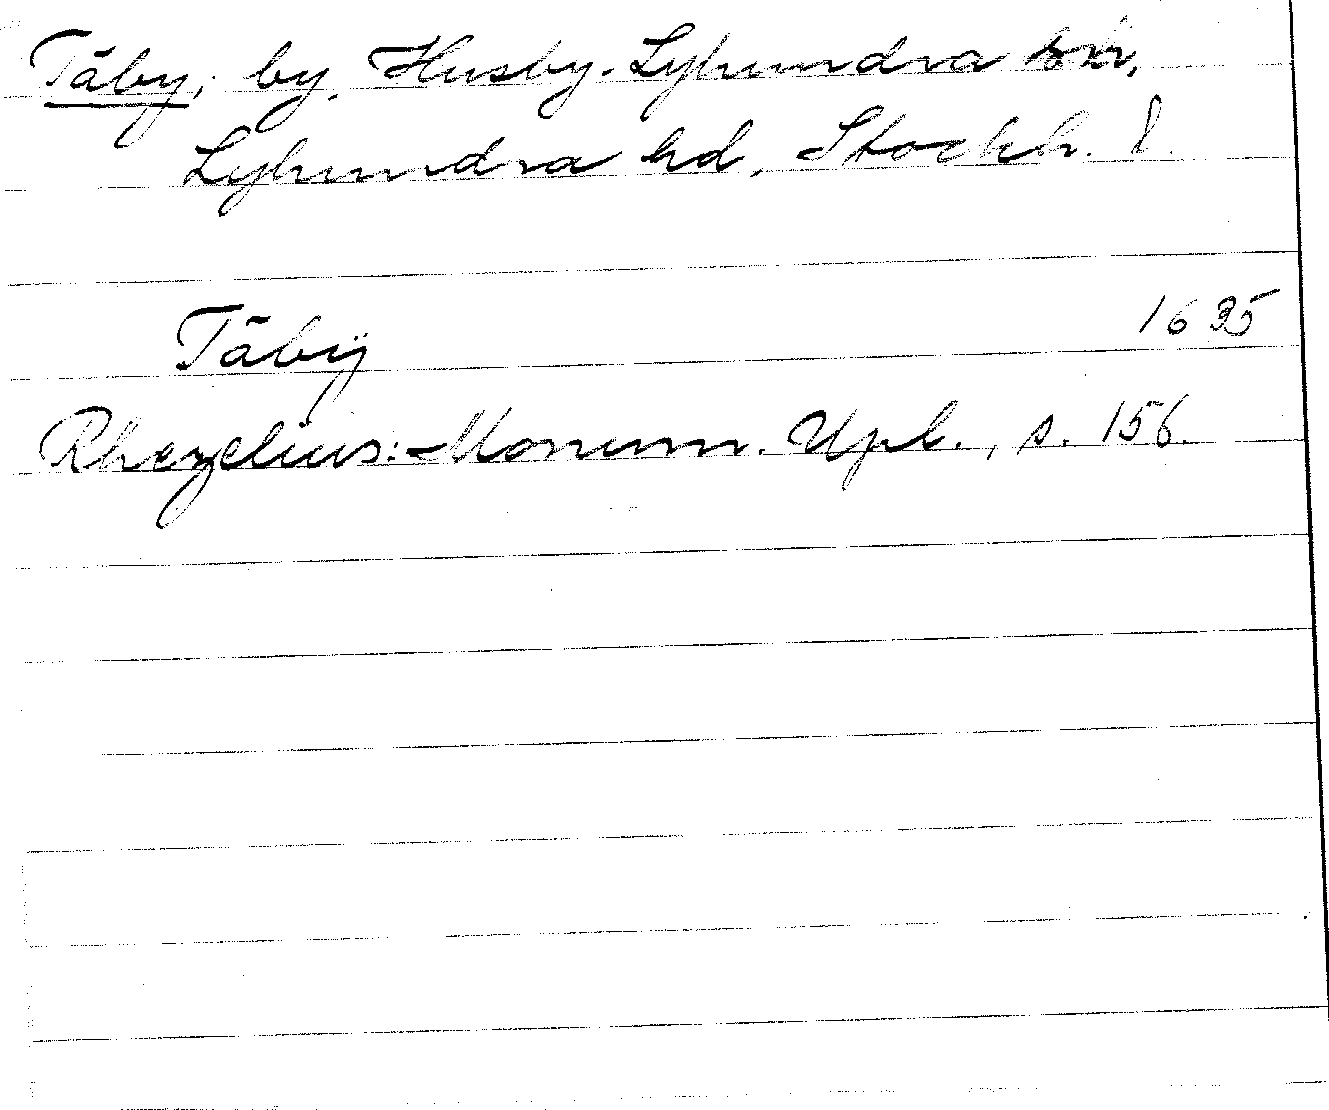 Täby, by, Husby-Lyhundra skn,
Lyhundra hd, Stockh. l.
Täbÿ 1635
Rhezelius: Monum. Upl., s. 156.